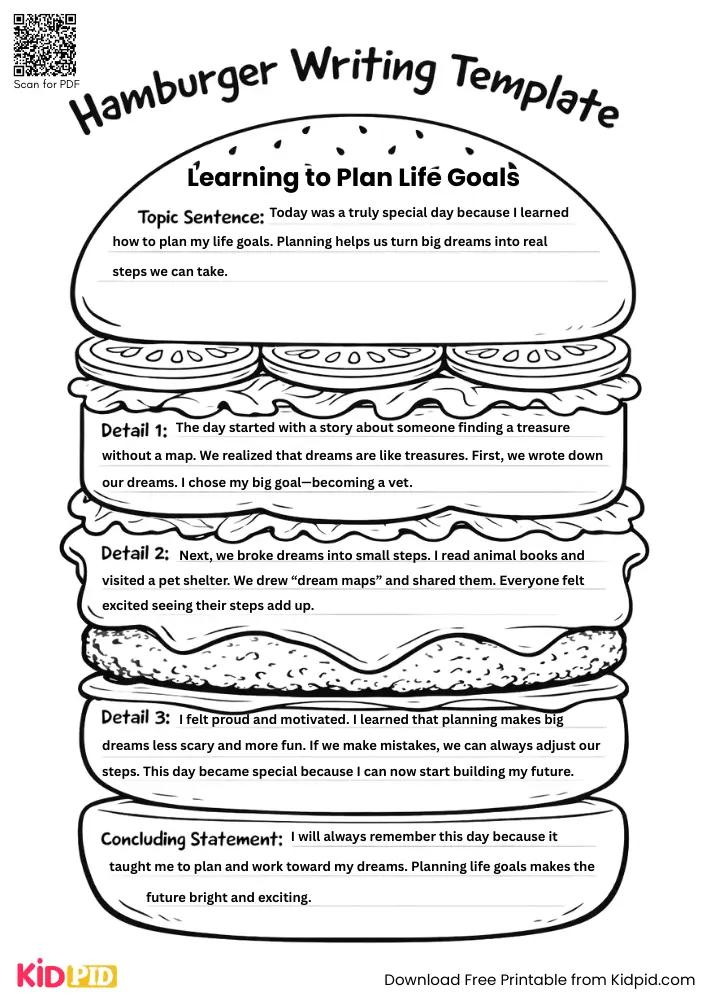 Scan for PDF
Hamburger Writing Template
Learning to Plan Life Goals
Topic Sentence: Today was a truly special day because I learned
how to plan my life goals. Planning helps us turn big dreams into real
steps we can take.
Detail 1: The day started with a story about someone finding a treasure
without a map. We realized that dreams are like treasures. First, we wrote down
our dreams. I chose my big goal—becoming a vet.
Detail 2: Next, we broke dreams into small steps. I read animal books and
visited a pet shelter. We drew “dream maps” and shared them. Everyone felt
excited seeing their steps add up.
Detail 3: I felt proud and motivated. I learned that planning makes big
dreams less scary and more fun. If we make mistakes, we can always adjust our
steps. This day became special because I can now start building my future.
Concluding Statement: I will always remember this day because it
taught me to plan and work toward my dreams. Planning life goals makes the
future bright and exciting.
KIDPID
Download Free Printable from Kidpid.com